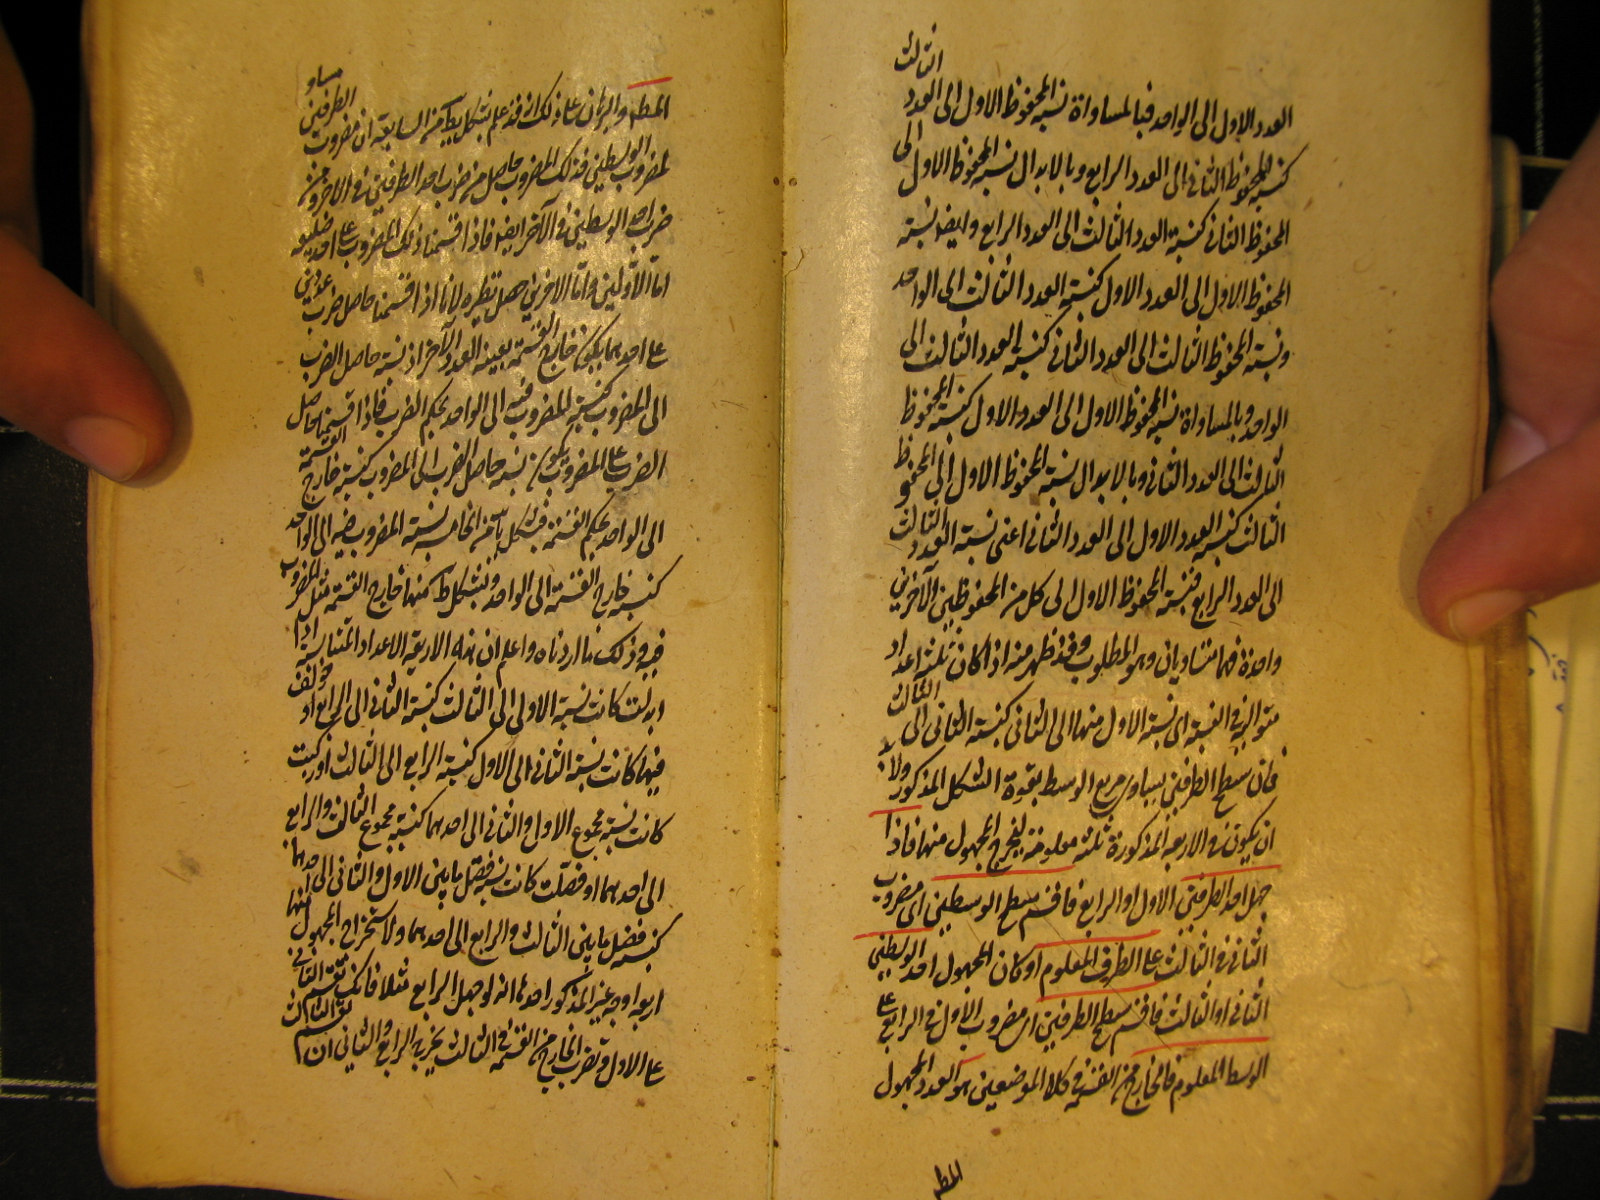 العدد الاول الى الواحد فبالمساواة نسبة المحفوظ الاول الى العدد الثالث
كنسبة المحفوظ الثانى الى العدد الرابع وبالابدال نسبة المحفوظ الاول الى
المحفوظ الثانى كنسبة العدد الثالث الى العدد الرابع وايضا نسبة
المحفوظ الاول الى العدد الاول كنسبة العدد الثالث الى الواحد
ونسبة المحفوظ الثالث الى العدد الثانى كنسبة العدد الثالث الى
الواحد وبالمساواة نسبة المحفوظ الاول الى العدد الاول كنسبة المحفوظ
الثالث الى العدد الثانى وبالابدال نسبة المحفوظ الاول الى المحفوظ
الثالث كنسبة العدد الاول الى العدد الثانى اعنى نسبة العدد الثالث
الى العدد الرابع فنسبة المحفوظ الاول الى كل من المحفوظين الآخرين
واحدة فهما متساويان وهو المطلوب وقد ظهر منه اذا كان ثلثة اعداد
متوالية فى النسبة اى نسبة الاول منها الى الثانى كنسبة الثانى الى الثالث
فان سطح الطرفين يساوى مربع الوسط بقوة الشكل المذكور ولابد
ان يكون فى الاربعة المذكورة ثلثة معلومة ليخرج المجهول منها فاذا
جهل احد الطرفين الاول او الرابع فاقسم سطح الوسطين اى مضروب
الثانى فى الثالث على الطرف المعلوم او كان المجهول احد الوسطين
الثانى او الثالث فاقسم سطح الطرفين اى مضروب الاول فى الرابع على
الوسط المعلوم فالخارج من القسمة فى كلا الموضعين هو العدد المجهول
المطـ
المطـ والبرهان على ذلك انه قد علم بشكل يط من السابعة ان مضروب الطرفين مساو
لمضروب الوسطين فذلك المضروب حاصل من ضرب احد الطرفين فى الآخر ومن
ضرب احد الوسطين فى الآخر ايضا فاذا قسمنا ذلك المضروب على احد ضلعيه
اما الاولين واما الآخرين حصل نظيره لانا اذا قسمنا حاصل ضرب عددين
على احدهما يكون خارج القسمة بعينه العدد الآخر اذ نسبة حاصل الضرب
الى المضروب كنسبة المضروب فيه الى الواحد بحكم الضرب فاذا قسمنا حاصل
الضرب على المضروب يكون نسبة حاصل الضرب الى المضروب كنسبة خارج القسمة
الى الواحد بحكم القسمة فبشكل يا من الخامسة نسبة المضروب فيه الى الواحد
كنسبة خارج القسمة الى الواحد وبشكل ط منها خارج القسمة مثل المضروب
فيه وذلك ما اردناه واعلم ان هذه الاربعة الاعداد المتناسبة اذا
ابدلت كانت نسبة الاول الى الثالث كنسبة الثانى الى الرابع او خولف
فيها كانت نسبة الثانى الى الاول كنسبة الرابع الى الثالث او ركبت
كانت نسبة مجموع الاول والثانى الى احدهما كنسبة مجموع الثالث والرابع
الى احدهما او فضلت كانت نسبة فضل ما بين الاول والثانى الى احدهما
كنسبة فضل ما بين الثالث والرابع الى احدهما ولاستخراج المجهول منها
اربعة اوجه غير المذكور احدها انه لو جهل الرابع مثلا فانك تقسم الثانى
على الاول وتضرب الخارج من القسمة فى الثالث يخرج الرابع والثانى ان تقسم الثالث